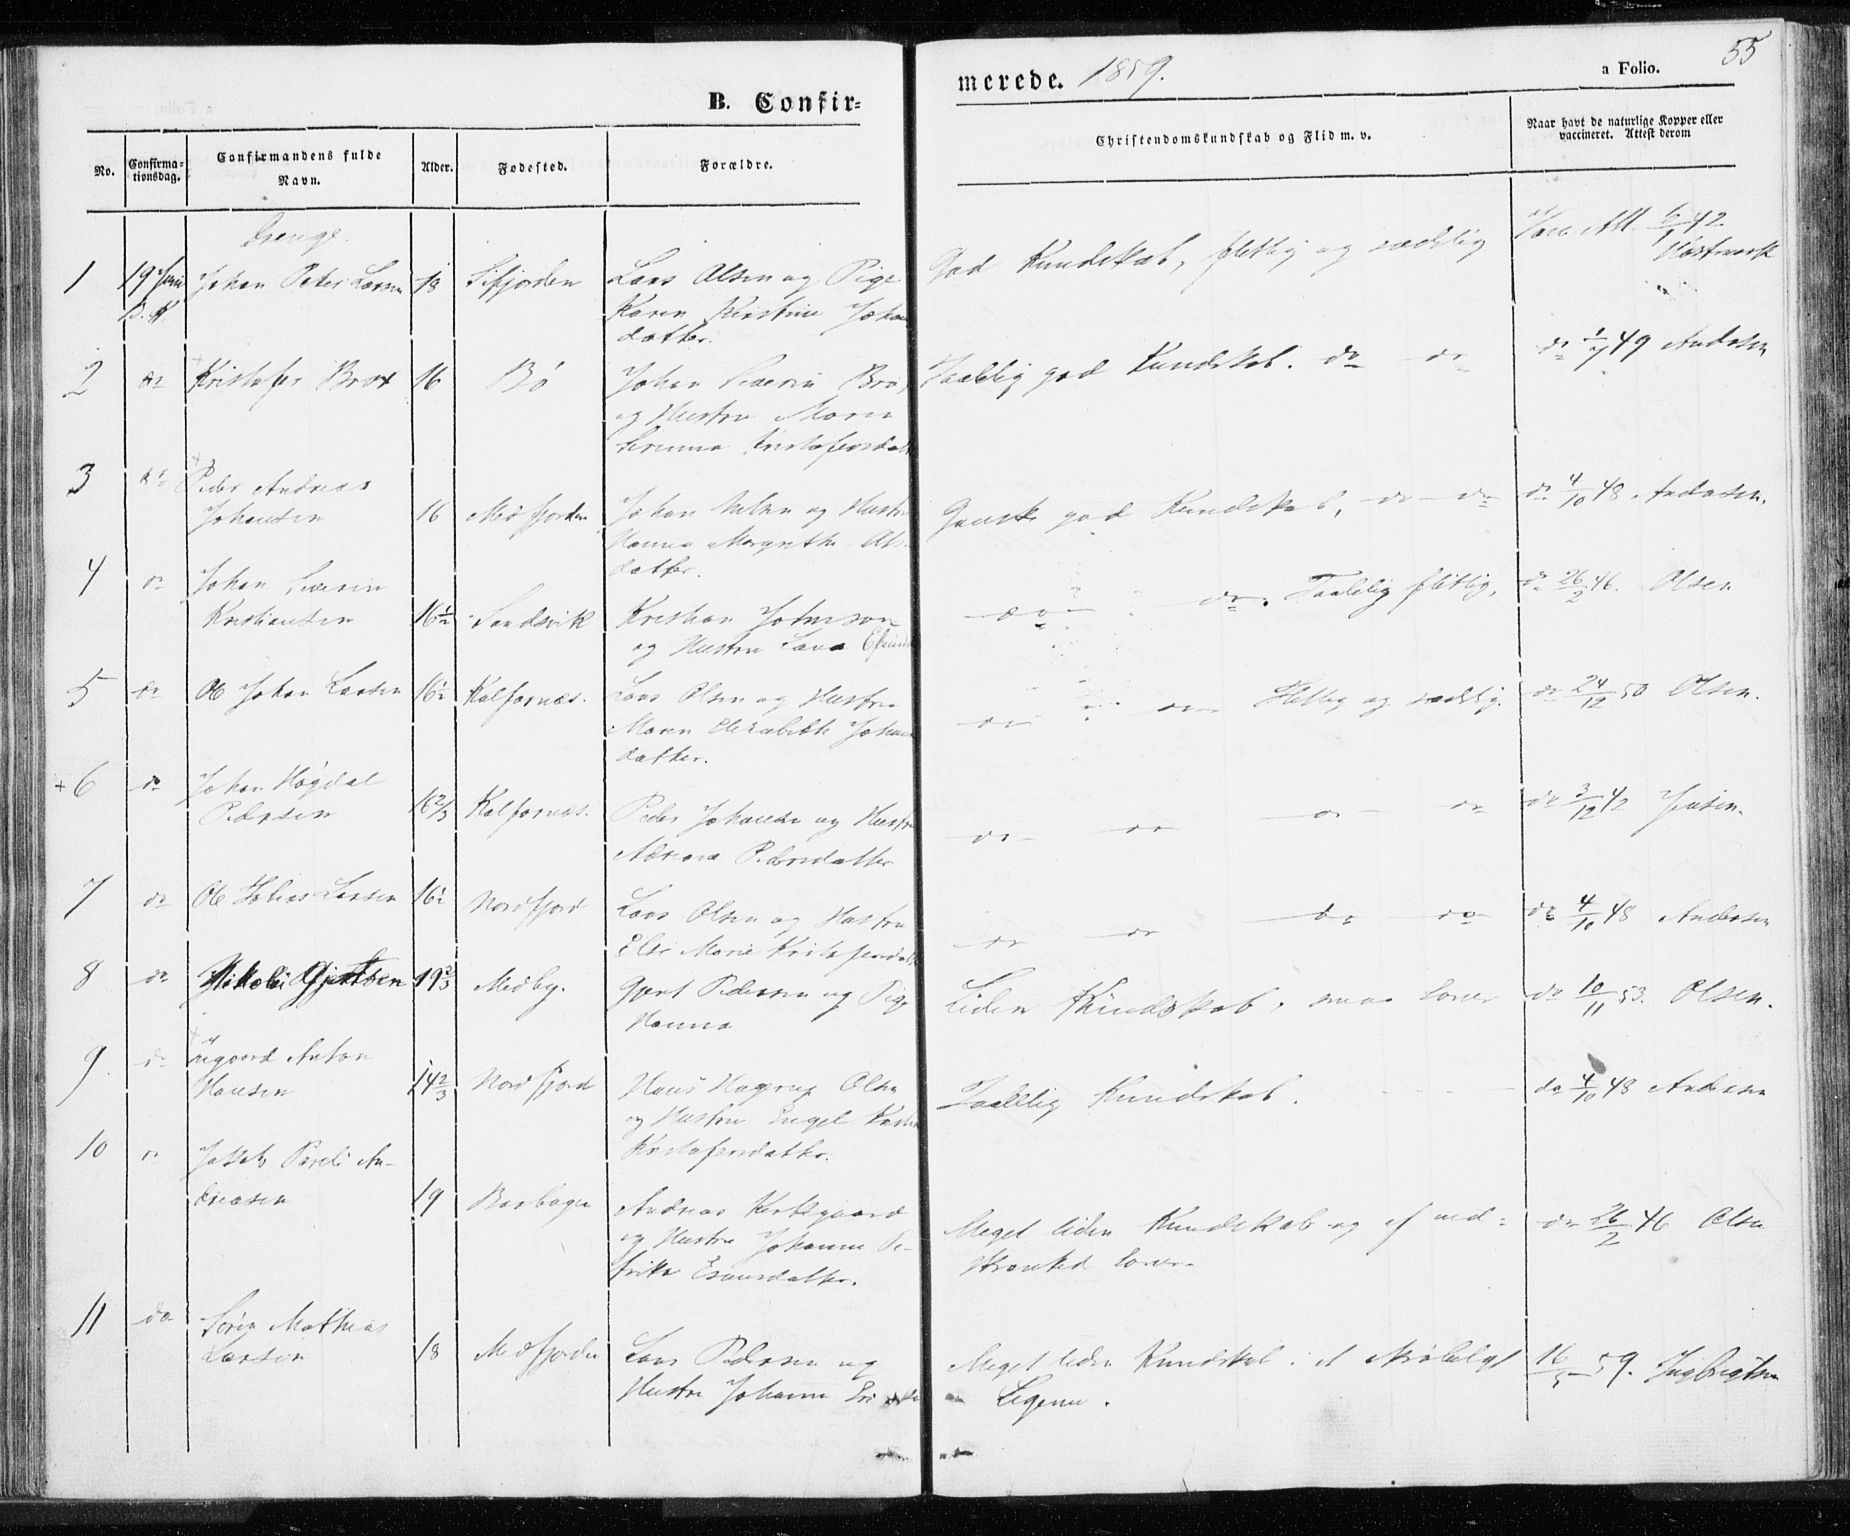 B. Confir=
merede. 1859.
a Folio. 55
No.
Confirma=
tionsdag.
Confirmandens fulde
Navn.
Alder.
Fødested.
Forældre.
Christendomskundskab og Flid m. v.
Naar havt de naturlige Kopper eller
vaccineret. Attest derom
Drenge.
1 19 Juni Johan Peter Larsen 18 Sifjorden Lars Olsen og Pige
Karen Kirstine Johan
datter.
God Kundskab, flittig og sædelig
Vacc. Att. 6/1 42
2 do Kristofer Brox 16 Bø Johan Severin
og Hustru Maren
Kristofersdatt
Taalelig god Kundskab. do do
do 1/7 49 Andersen
3 do Peder Andreas
Johansen 16 Medfjorden Johan og Hustru
Hanna Margrethe Ols
datter.
Ganske god Kundskab, do do
do 4/10 48. Andersen.
4 do Johan Severin
Kristiansen 16½ Sandsvik Kristian Johnson
og Hustru Lava
do do. Taalelig flittig,
do 26/2 46. Olsen
5 do Ole Johan Larsen 16½ Kalfarnæs. Lars Olsen og Hustru
Maren Elisabeth Johan
datter.
do do Flittig og sædelig.
do 24/12 50 Olsen.
+ 6 do Johan Høgdal
Pedersen 16 2/3 Kalfarnæs. Peder Johansen og Hustru
Pedersdatter
do do do do
do 3/12 42 Jensen.
7 do Ole Tobias Larsen 16½ Nordfjord Lars Olsen og Hustru
Else Marie Kristofersdatt
do do do do
do 4/10 48 Andersen
8 do Nikolai Gjertsen 19 2/3 Medby. Gjert Pedersen og Pige
Hanna
Liden Kundskab, svage Evner
do 10/11 53. Olsen.
9. do Anton
Hansen 14 2/3 Nordfjord Hans Hagerup Olsen
og Hustru Engel
Kristofersdatter.
Taalelig Kundskab.
do 4/10 48 Andersen
10 do Jakob Pareli An-
dreasen 19 Andreas
og Hustru Johanna Pe-
trike Esaiasdatter.
Meget liden Kundskab og af ind=
skrænked Evner.
do 26/2 46 Olsen
11 do Søren Mathias
Larsen 18 Medfjorden Lars Pedersen og
Hustru Johanna
Meget liden Kundskab. et skrøbeligt
Legeme.
16/5 59. Ingbrigtsen